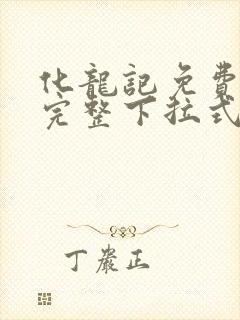 化龍記免費
完整下拉式
丁嚴正